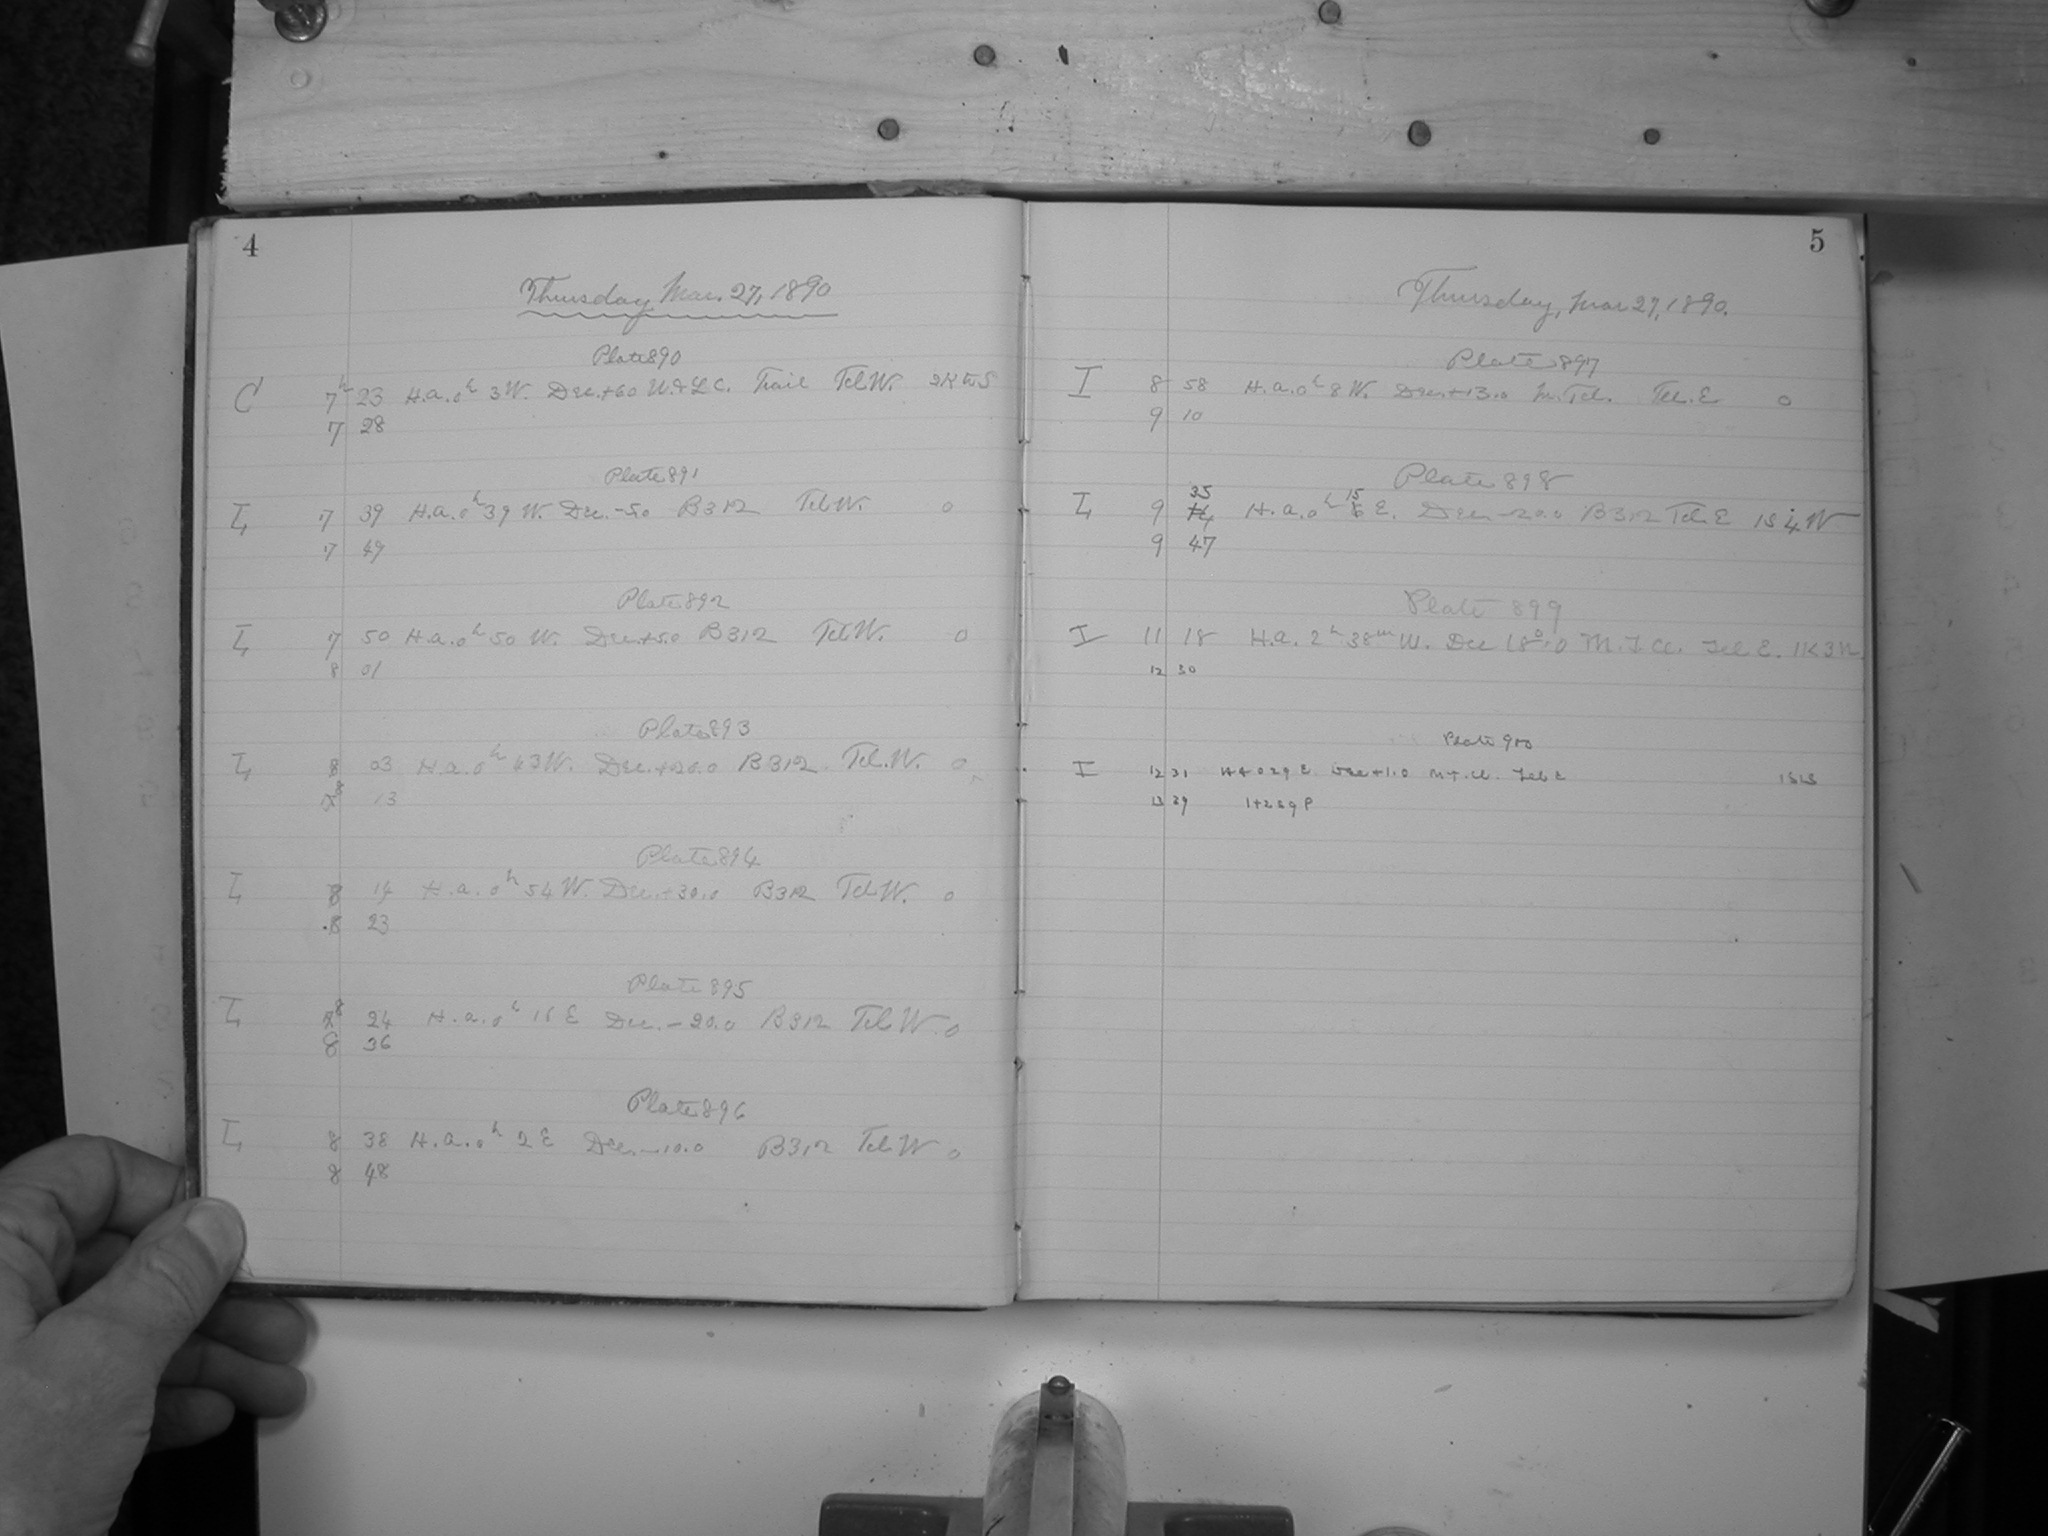 4
Thursday Mar. 27, 1890
Plate 890
C 7h 23 H.a. 0h 3 W. Dec. +60 U.&L.C. Trail Tel. W.
7 28
Plate 891
I 7 39 H.a. 0h 39 W. Dec. -5.0 B 312 Tel. W. 0
7 49
Plate 892
I 7 50 H.a. 0h 50 W. Dec. +5.0 B 312 Tel. W. 0
8 01
Plate 893
I 8 03 H.a. 0h 43 W. Dec. +20.0 B 312 Tel. W. 0
8 13
Plate 894
I 8 14 H.a. 0h 54 W. Dec. +30.0 B 312 Tel. W. 0
8 23
Plate 895
I 8 24 H.a. 0h 16 E Dec. -20.0 B 312 Tel. W. 0
8 36
Plate 896
I 8 38 H.a. 0h 2 E Dec. -10.0 B 312 Tel. W 0
8 48
5
Thursday, Mar 27, 1890.
Plate 897
I 8 58 H.a. 0h 8 W. Dec. +13.0 M. Tel. Tel. E 0
9 10
Plate 898
I 9 35 H.a. 0h 15 E. Dec. -20.0 B 312 Tel. E 1S 4 W
9 47
Plate 899
I 11 18 H.a. 2h 38m W. Dec 18°.0 M.T.Cl. Tel E. 1K3N
12 30
Plate 900
I 12 31 H a 0 29 E Dec +1.0 M.T.Cl. Tel E
13 39